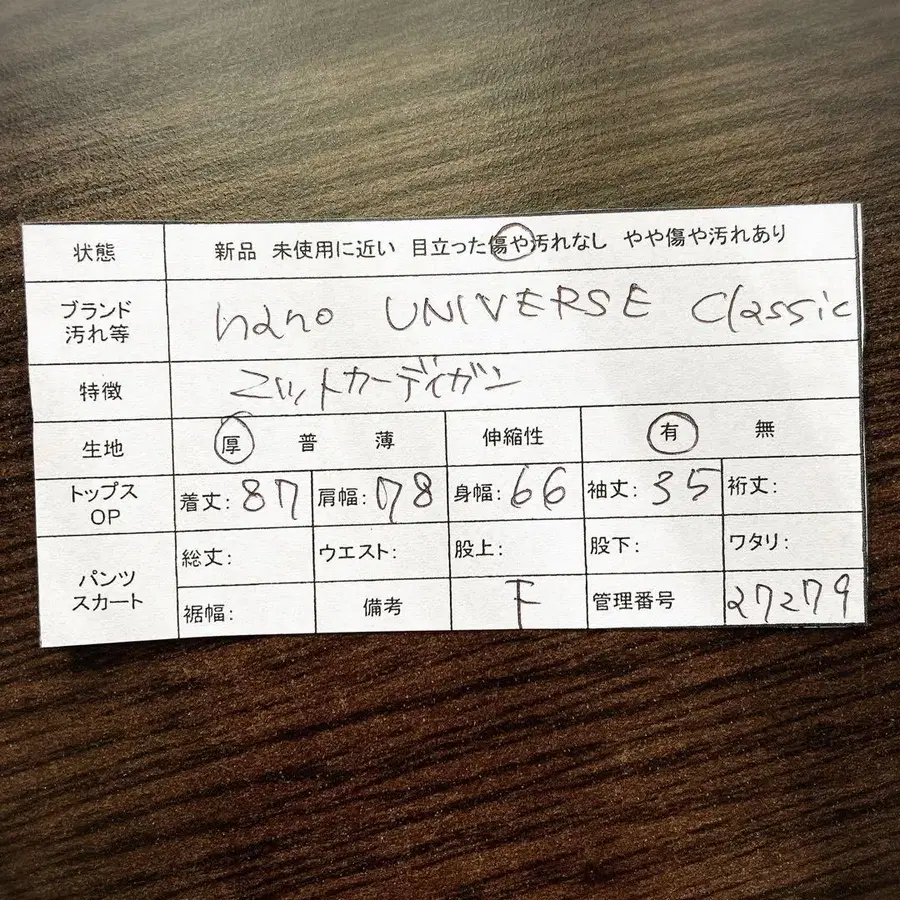 状態 新品 未使用に近い 目立った傷や汚れなし やや傷や汚れあり
ブランド
汚れ等
nano UNIVERSE Classic
特徴 ニットカーディガン
生地 厚 普 薄 伸縮性 有 無
トップス
OP
着丈:87 肩幅:78 身幅:66 袖丈:35 裄丈:
パンツ
スカート
総丈: ウエスト: 股上: 股下: ワタリ:
裾幅: 備考 下 管理番号 27279